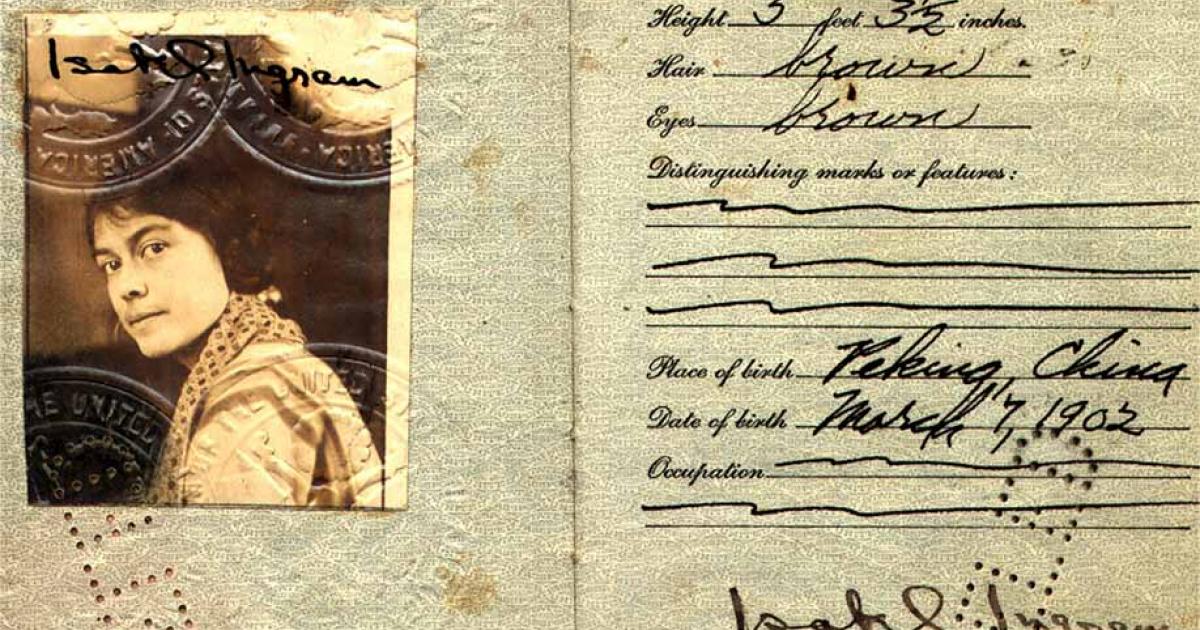 Isabel Ingram
S OF AMERICA
ERICA
HE UNITED
UNITED
Height 5 feet 3½ inches.
Hair brown
Eyes brown
Distinguishing marks or features:
Place of birth Peking, China
Date of birth March 7, 1902
Occupation
Isabel Ingram